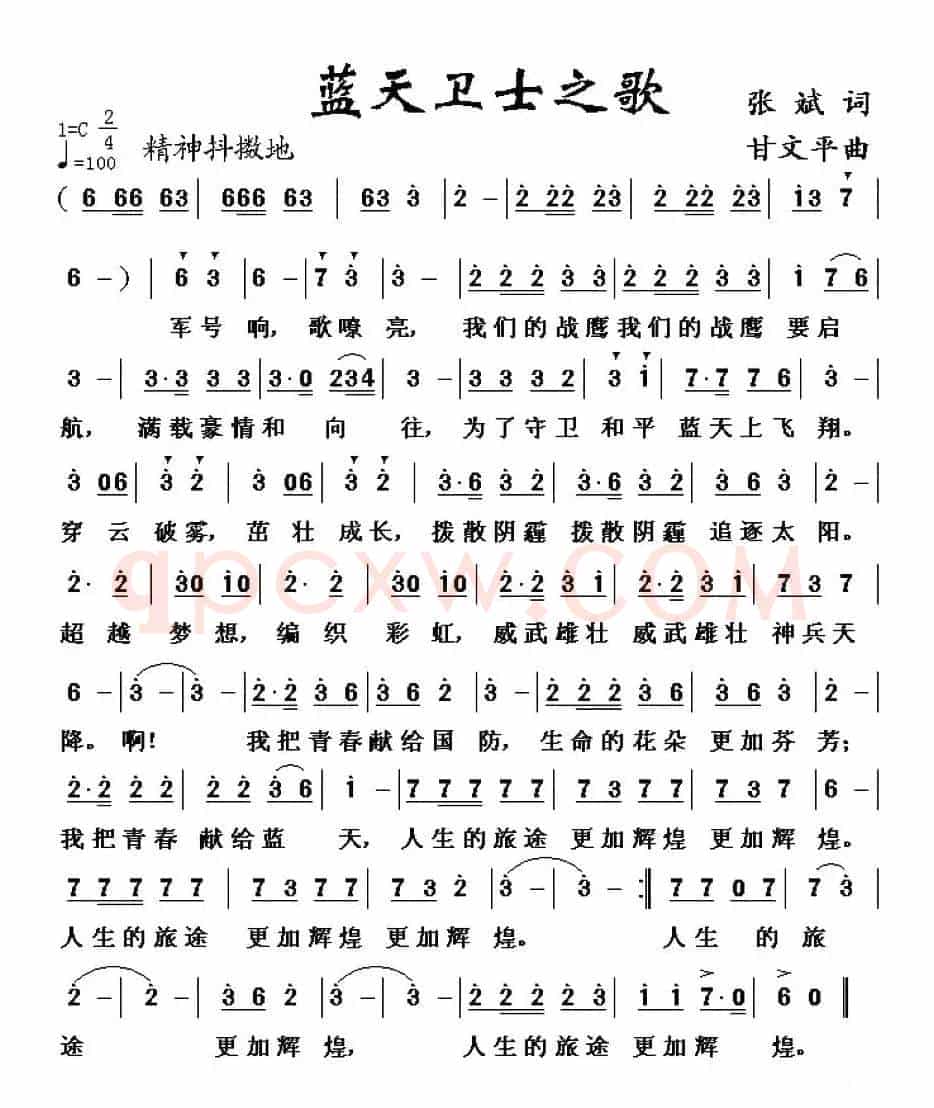 蓝天卫士之歌
张 斌 词
1=C 2/4
♩=100 精神抖擞地
甘文平曲
( 6 66 63 | 666 63 | 63 3 | 2 - | 2 22 23 | 2 22 23 | 13 7 |
6 - ) | 6 3 | 6 - | 7 3 | 3 - | 2 2 2 3 3 | 2 2 2 3 3 | 1 7 6 |
军号 响, 歌嘹 亮, 我们的战鹰我们的战鹰 要启
3 - | 3·3 3 3 | 3·0 234 | 3 - | 3 3 3 2 | 3 1 | 7·7 7 6 | 3 - |
航, 满载豪情和 向 往, 为了守卫 和平 蓝天上飞 翔。
3 06 | 3 2 | 3 06 | 3 2 | 3·6 3 2 | 3·6 3 2 | 3 6 3 | 2 - |
穿 云 破雾, 茁 壮 成长, 拨散阴霾 拨散阴霾 追逐太 阳。
2· 2 | 30 10 | 2· 2 | 30 10 | 2·2 3 1 | 2·2 3 1 | 7 3 7 |
超 越 梦 想, 编 织 彩 虹, 威武雄壮 威武雄壮 神兵天
6 - | 3 - | 3 - | 2·2 3 6 | 3 6 2 | 3 - | 2 2 2 3 6 | 3 6 2 | 3 - |
降。 啊! 我把青春献给国 防, 生命的花朵 更加芬 芳;
2·2 2 2 | 2 2 3 6 | 1 - | 7 7 7 7 7 | 7 3 7 7 | 7 3 2 | 6 - |
我把青春 献给蓝 天, 人生的旅途 更加辉煌 更加辉 煌。
7 7 7 7 7 | 7 3 7 7 | 7 3 2 | 3 - | 3 - :‖ 7 7 0 7 | 7 3 |
人生的旅途 更加辉煌 更加辉 煌。 人生 的 旅
2 - | 2 - | 3 6 2 | 3 - | 3 - | 2 2 2 2 3 | 1 1 7·0 | 6 0 ‖
途 更加辉 煌, 人生的旅途更加辉 煌。
qpcxw.COM